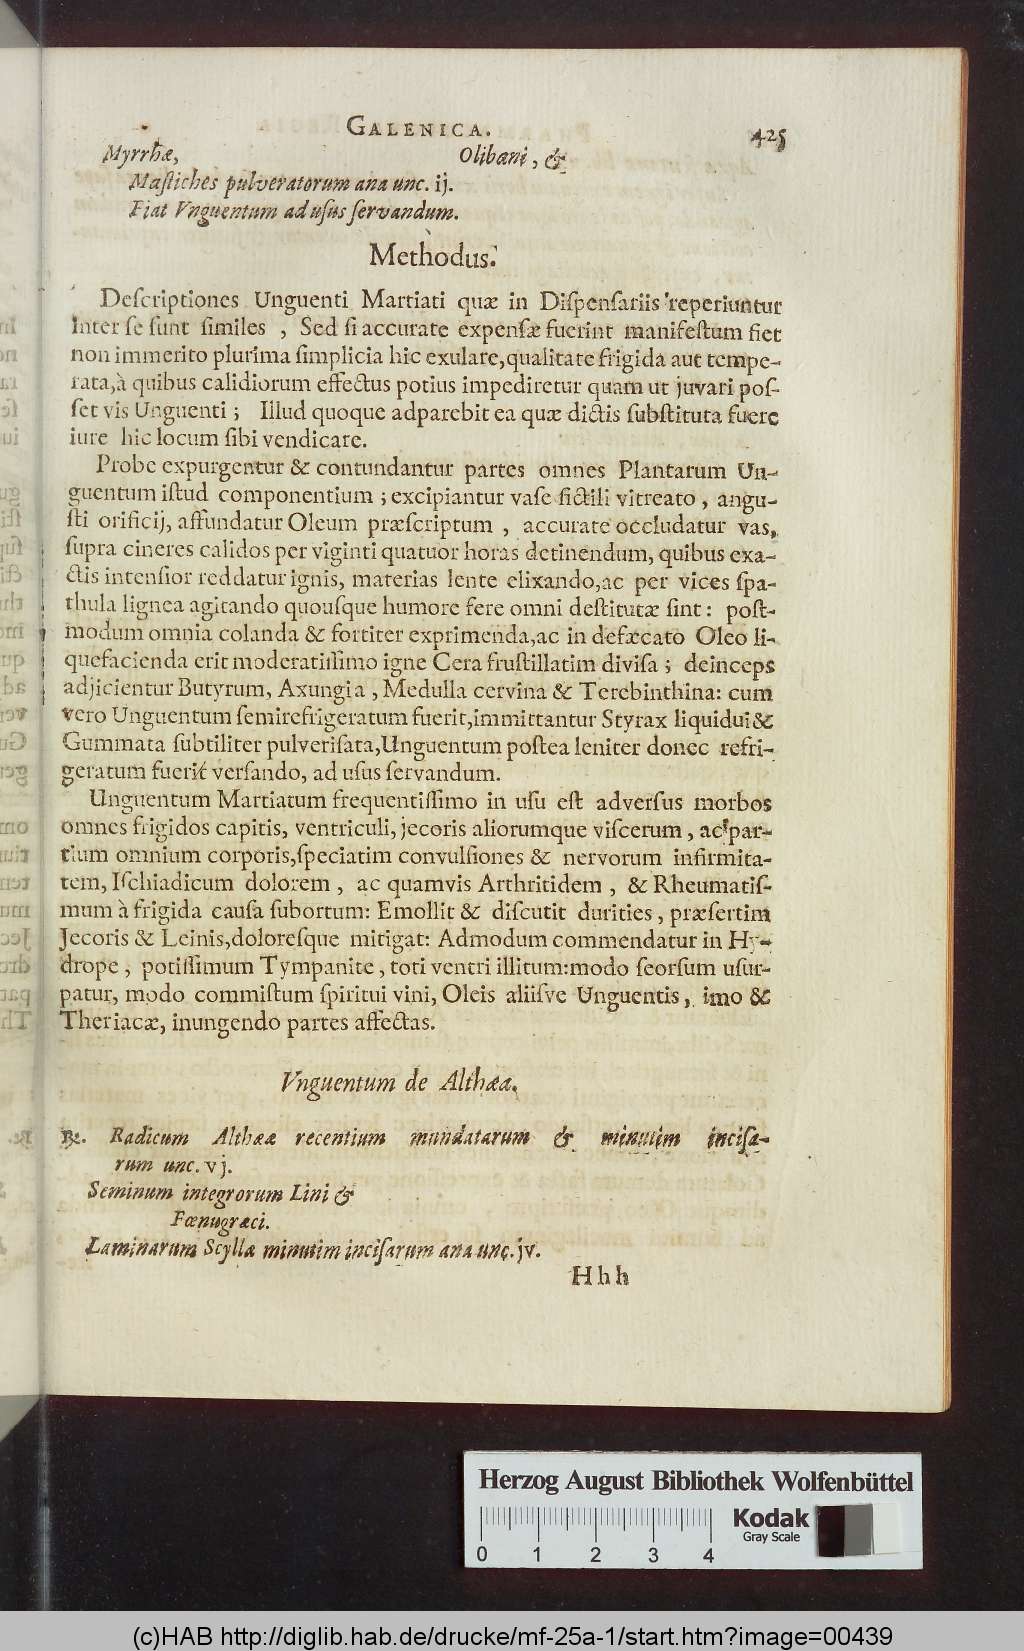 GALENICA. 425
Myrrhæ, Olibani, &
Maſtiches pulveratorum ana unc. ij.
Fiat Vnguentum ad uſus ſervandum.
Methodus.
Deſcriptiones Unguenti Martiati quæ in Diſpenſariis reperiuntur
inter ſe ſunt ſimiles , Sed ſi accurate expenſæ fuerint manifeſtum fiet
non immerito plurima ſimplicia hic exulare,qualitate frigida aut tempe-
rata,à quibus calidiorum effectus potius impediretur quam ut juvari poſ-
ſet vis Unguenti ; Illud quoque adparebit ea quæ dictis ſubſtituta fuere
iure hic locum ſibi vendicare.
Probe expurgentur & contundantur partes omnes Plantarum Un-
guentum iſtud componentium ; excipiantur vaſe fictili vitreato , angu-
ſti orificij, affundatur Oleum præſcriptum , accurate occludatur vas,
ſupra cineres calidos per viginti quatuor horas detinendum, quibus exa-
ctis intenſior reddatur ignis, materias lente elixando,ac per vices ſpa-
thula lignea agitando quouſque humore fere omni deſtitutæ ſint : poſt-
modum omnia colanda & fortiter exprimenda,ac in defæcato Oleo li-
quefacienda erit moderatiſſimo igne Cera fruſtillatim diviſa ; deinceps
adjicientur Butyrum, Axungia , Medulla cervina & Terebinthina: cum
vero Unguentum ſemirefrigeratum fuerit,immittantur Styrax liquidui &
Gummata ſubtiliter pulveriſata,Unguentum poſtea leniter donec refri-
geratum fuerit verſando, ad uſus ſervandum.
Unguentum Martiatum frequentiſſimo in uſu eſt adverſus morbos
omnes frigidos capitis, ventriculi, jecoris aliorumque viſcerum , ac par-
tium omnium corporis,ſpeciatim convulſiones & nervorum infirmita-
tem, Iſchiadicum dolorem , ac quamvis Arthritidem , & Rheumatiſ-
mum à frigida cauſa ſubortum: Emollit & diſcutit durities , præſertim
Jecoris & Leinis,doloreſque mitigat: Admodum commendatur in Hy-
drope , potiſſimum Tympanite , toti ventri illitum:modo ſeorſum uſur-
patur, modo commiſtum ſpiritui vini, Oleis aliiſve Unguentis, imo &
Theriacæ, inungendo partes affectas.
Vnguentum de Althæa.
℞. Radicum Althææ recentium mundatarum & minutim inciſa-
rum unc. vj.
Seminum integrorum Lini &
Fœnugræci.
Laminarum Scyllæ minutim inciſarum ana unc. jv.
Hhh
Herzog August Bibliothek Wolfenbüttel
Kodak
Gray Scale
0 1 2 3 4
(c)HAB http://diglib.hab.de/drucke/mf-25a-1/start.htm?image=00439